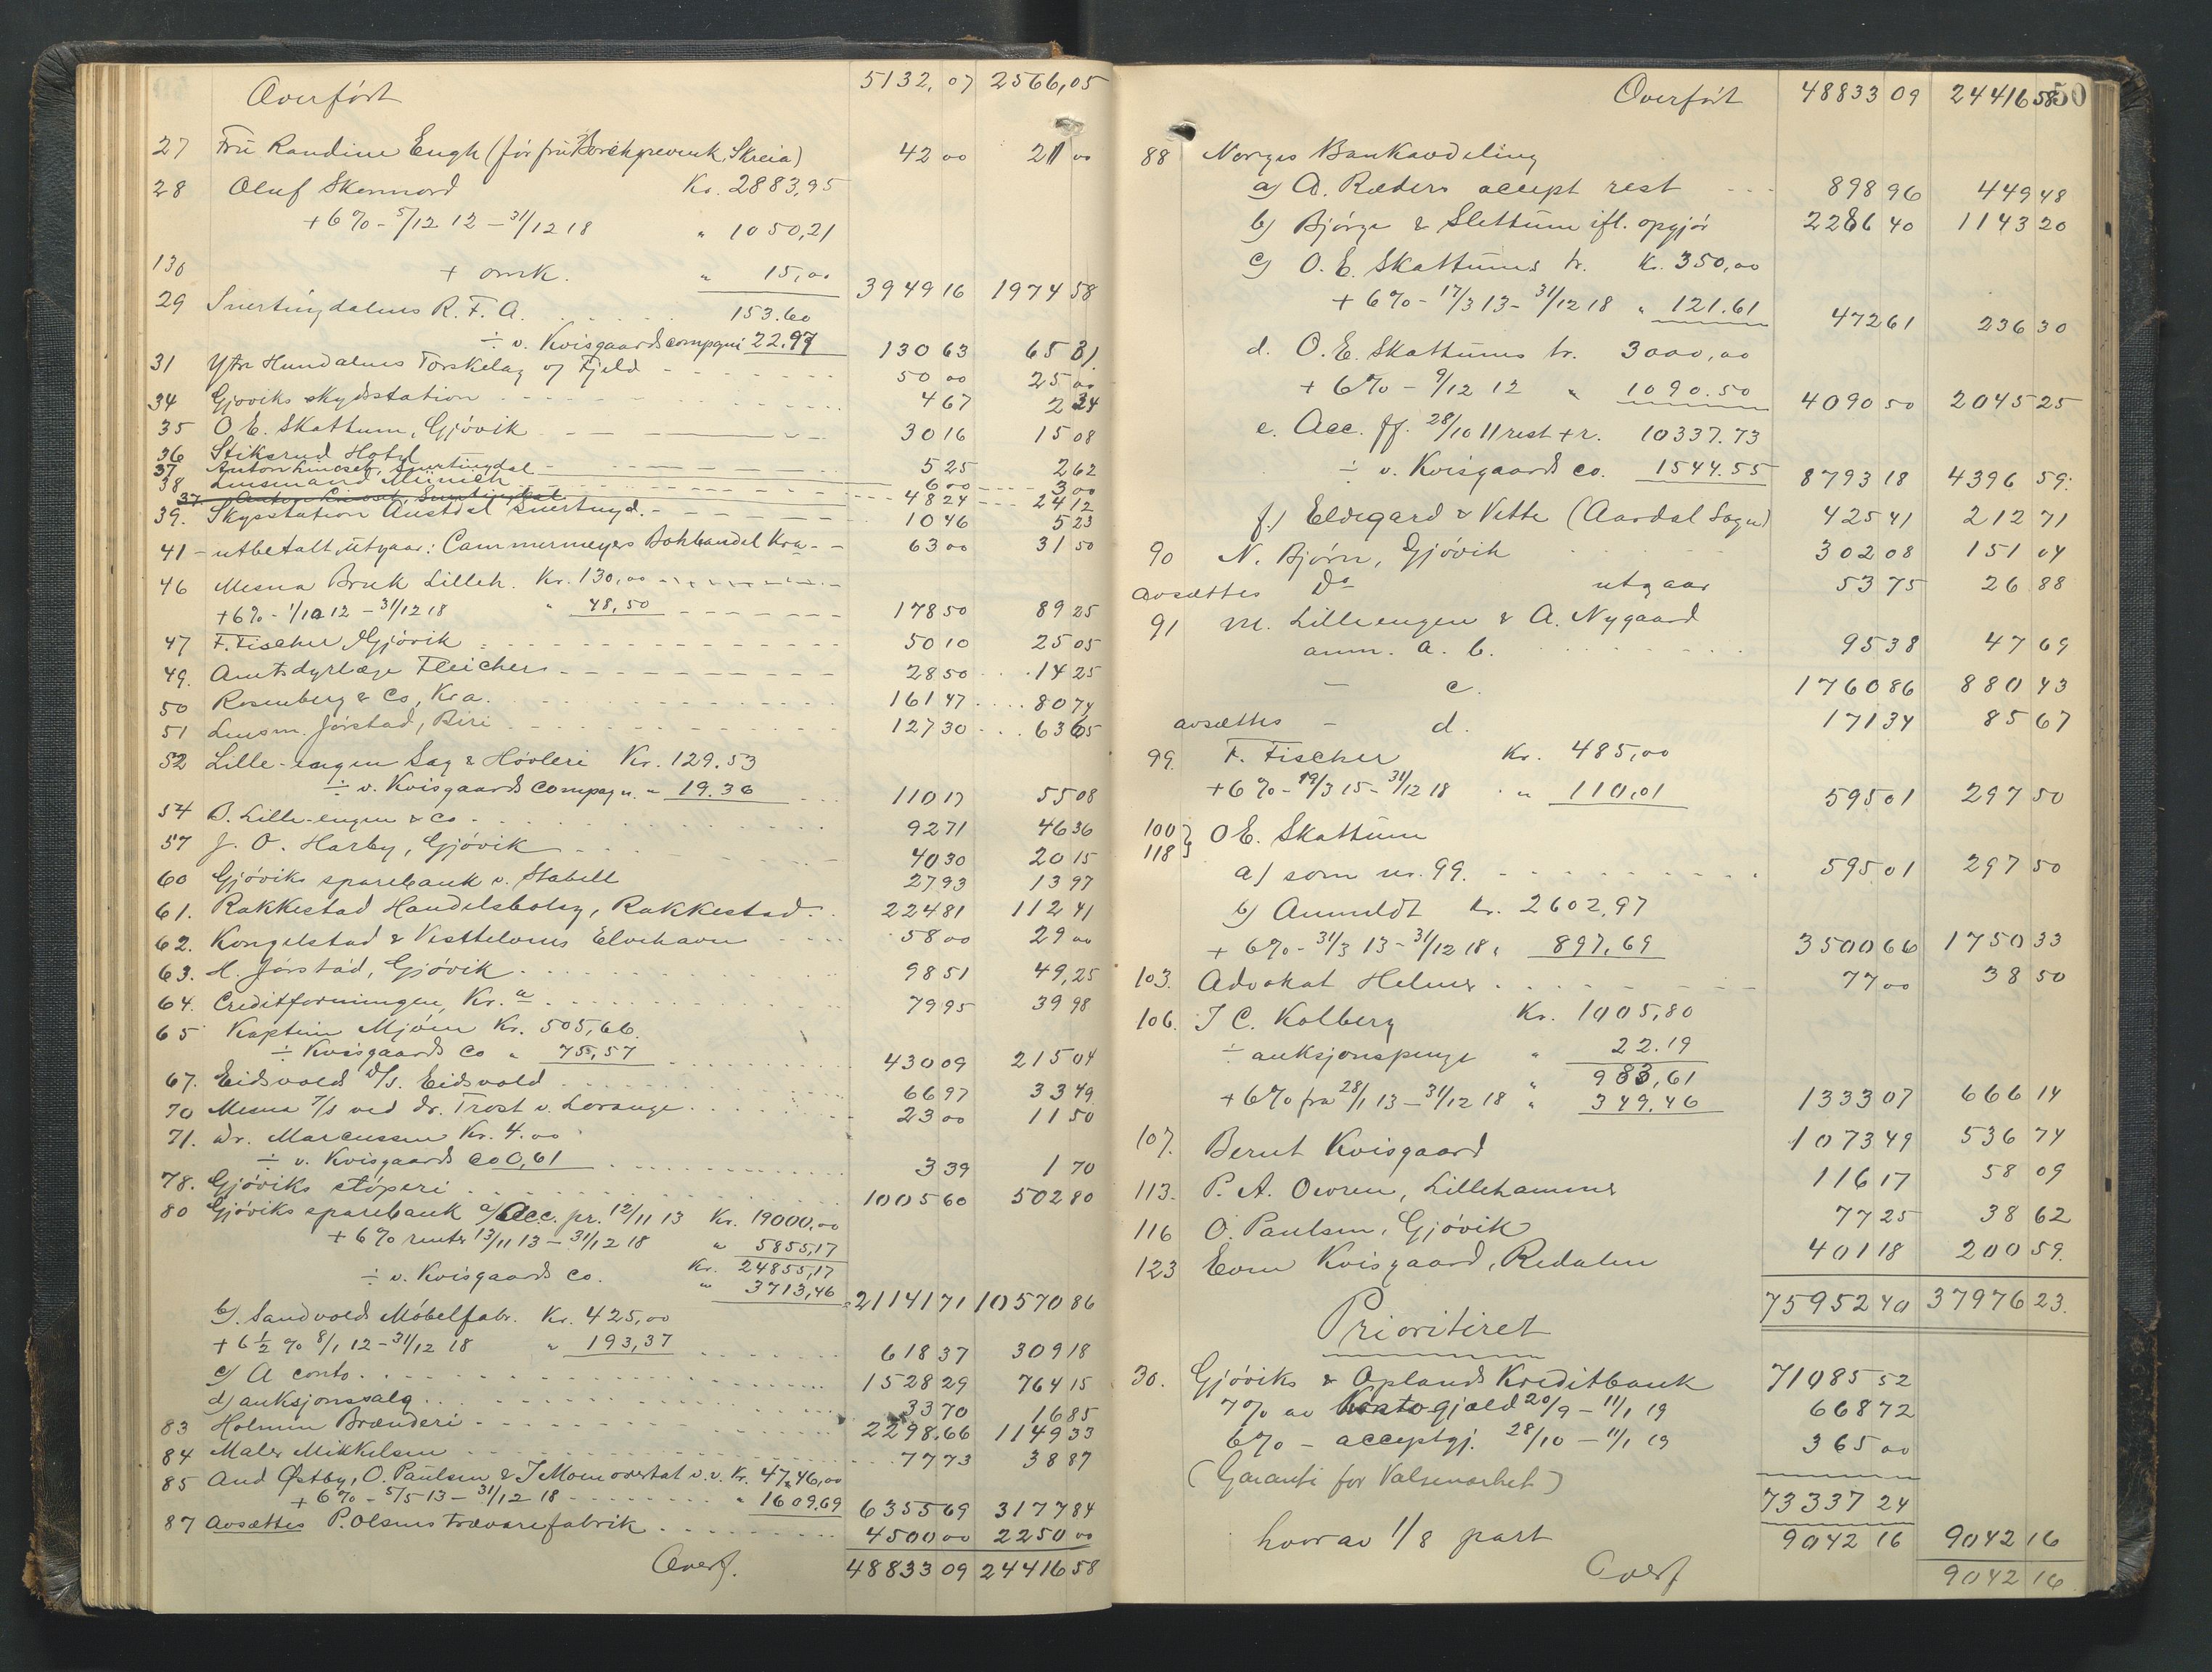 Overført 5132,07 2566,05
27 Fru Randine Engh (før fru Borchgrevink, Skreia) 42 00 21 00
28 Oluf Skonnord Kr. 2883,95
+ 6% - 5/12 12 - 31/12 18 " 1050,21
130 + omk. " 15,00 3949 16 1974 58
29 Snertingdalens R. F. A. 153.60
÷ v. Kvisgaards compagni 22.97 130 63 65 31
31 Ytre Hundalens Torskelag og Fjeld 50 00 25 00
34 Gjøviks skydsstation 4 67 2 34
35 O. E. Skattum, Gjøvik 30 16 15 08
36 Stiksrud Hotel 5 25 2 62
37 Anton Linoset, Snertingdal
38 Lensmand Münich 6 00 3 00
37 Anton Linoset, Snertingdal 48 24 24 12
39. Skysstation Austdal Snertingd. 10 46 5 23
41 - utbetalt, utgaar: Cammermeyers Bokhandel Kra 63 00 31 50
46 Mesna Bruk Lilleh. Kr. 130,00
+ 6% - 1/10 12 - 31/12 18 " 48,50 178 50 89 25
47 F. Fischer, Gjøvik 50 10 25 05
49. Amtsdyrlæge Fleicher 28 50 14 25
50 Rosenberg & Co, Kra. 161 47 80 74
51 Lensm. Jørstad, Biri 127 30 63 65
52 Lille-engen Sag & Høvleri Kr. 129.53
÷ v. Kvisgaards Compagn. " 19.36 110 17 55 08
54 B. Lille-engen & Co 92 71 46 36
57 J. O. Harby, Gjøvik 40 30 20 15
60 Gjøviks sparebank v. Stabell 27 93 13 97
61. Rakkestad Handelsbolag, Rakkestad 224 81 112 41
62. Kongelstad & Vesttelorens Elvehavn 58 00 29 00
63. H. Jørstad, Gjøvik 98 51 49,25
64. Creditforningen, Kr.a 79 95 39 98
65 Kaptein Mjøen Kr. 505,66
÷ Kvisgaards Co " 75,57 430 09 215 04
67. Eidsvolds D/S. Eidsvold 66 97 33 49
70 Mesna T/s ved dr. Trost v. Lorange 23 00 11 50
71. Dr. Marcussen Kr. 4.00
÷ v. Kvisgaards Co 0,61 3 39 1 70
78. Gjøviks støperi 1005 60 502 80
80 Gjøviks sparebank a/ Acc. pr. 12/11 13 Kr. 19000,00
+ 6% renter 13/11 13 - 31/12 18 " 5855,17
Kr. 24855,17
÷ v. Kvisgaards Co. " 3713,46 21141 71 10570 86
b/. Sandvolds Møbelfabr. Kr. 425,00
+ 6 1/2 % 8/1 12 - 31/12 18 " 193,37 618 37 309 18
c) A conto 1528 29 764 15
d) auksjonssalg 33 70 16 85
83 Holmen Brænderi 2298.66 1149 33
84 Maler Mikkelsen 77 73 38 87
85 And Østby, O. Paulsen & J Moen overtat v. v. Kr. 4746,00
+ 6% - 5/5 13 - 31/12 18 " 1609.69 6355 69 3177 84
87 Avsættes P. Olsens trævarefabrik 4500 00 2250 00
Overf. 48833 09 24416 58
50
Overført 48833 09 24416 58
88 Norges Bankavdeling
a) A. Ræders accept rest 898 96 449 48
b) Bjørge & Slettum ifl. opgjør 2286 40 1143 20
c) O. E. Skattums tr. Kr. 350,00
+ 6% - 17/3 13 - 31/12 18 " 121.61 472 61 236 30
d. O. E. Skattums tr. 3000,00
+ 6% - 9/12 12 " 1090.50 4090 50 2045 25
e. Acc. pf. 28/10 11 rest + r. 10337.73
÷ v. Kvisgaards Co. 1544.55 8793 18 4396 59
f.) Eldegard & Vette (Aardal Sogn) 425 41 212 71
90 N. Bjørn, Gjøvik 302 08 151 04
avsættes Do utgaar 53 75 26 88
91 M. Lilleengen & A. Nygaard
anm. a. b. 95 38 47 69
- c. 1760 86 880 43
avsættes - d. 171 34 85 67
99. F. Fischer Kr. 485,00
+ 6% - 19/3 15 - 31/12 18 " 110,01 595 01 297 50
100 } O E. Skattum
118
a) som nr. 99. 595 01 297 50
b) Anmeldt Kr. 2602,97
+ 6% - 31/3 13 - 31/12 18 " 897,69 3500 66 1750 33
103. Advokat Helmer 77 00 38 50
106. J C. Kolberg Kr. 1005,80
÷ auksjonspenge " 22.19
" 983,61
+ 6% fra 28/1 13 - 31/12 18 " 349.46 1333 07 666 14
107. Bernt Kvisgaard 1073 49 536 74
113. P. A. Owren, Lillehammer 116 17 58 09
116 O. Paulsen, Gjøvik 77 25 38 62
123 Even Kvisgaard, Redalen 401 18 200 59
75952 40 37976 23
Prioritiret
30. Gjøviks & Oplands Kreditbank 71085 52
7% av Kontogjæld 20/9 - 11/1 19 668 72
6% - acceptgj. 28/10 - 11/1 19 365 00
(Garanti for Valsenarhet) 73337 24
hvorav 1/8 part 9042 16 9042 16
Overf 9042 16